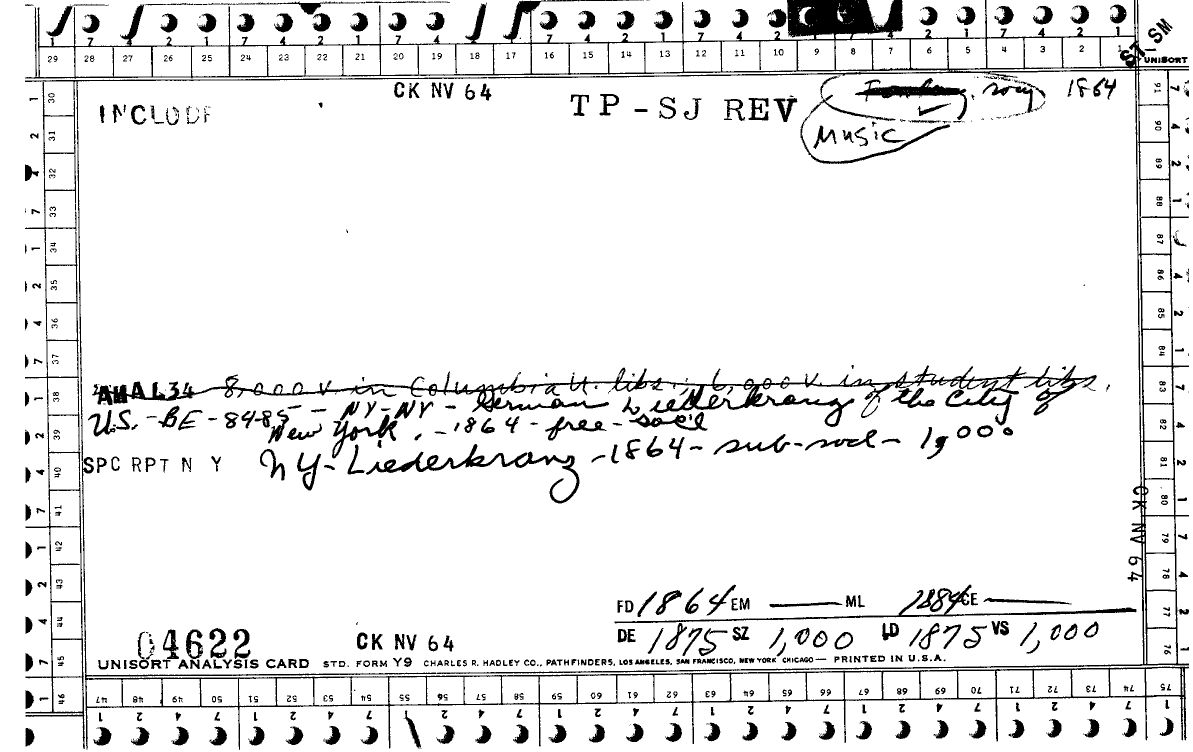 7 4 2 1 7 4 2 1 7 4 2 1 7 4 2 1 7 4 2 1 7 4 2 1
29 28 27 26 25 24 23 22 21 20 19 18 17 16 15 14 13 12 11 10 9 8 7 6 5 4 3 2 1
ST_SM
UNISORT
CK NV 64
INCLUDE
TP-SJ REV
song 1864
Music
AMA L34 8,000 v. in Columbia U. libs.; 6,000 v. in student libs.
U.S.-BE-84-85 - NY-NY - German Liederkranz of the City of
New York. - 1864 - free - soc'l
SPC RPT N Y NY-Liederkranz - 1864 - sub-socl - 1,000
CK NV 64
FD 1864 EM — ML 1884 CE —
DE 1875 SZ 1,000 LD 1875 VS 1,000
04622 CK NV 64
UNISORT ANALYSIS CARD STD. FORM Y9 CHARLES R. HADLEY CO., PATHFINDERS, LOS ANGELES, SAN FRANCISCO, NEW YORK CHICAGO — PRINTED IN U.S.A.
30 31 32 33 34 35 36 37 38 39 40 41 42 43 44 45 46
91 90 89 88 87 86 85 84 83 82 81 80 79 78 77 76 75
47 48 49 50 51 52 53 54 55 56 57 58 59 60 61 62 63 64 65 66 67 68 69 70 71 72 73 74